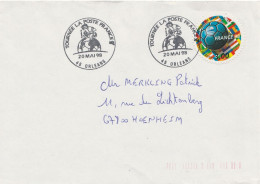 TOURNEE LA POSTE FRANCE 98
20 MAI 98
45 ORLEANS
TOURNEE LA POSTE FRANCE 98
20 MAI 98
45 ORLEANS
FRANCE
MERKLING Patrick
11, rue du Lichtenberg
67700 HOENHEIM